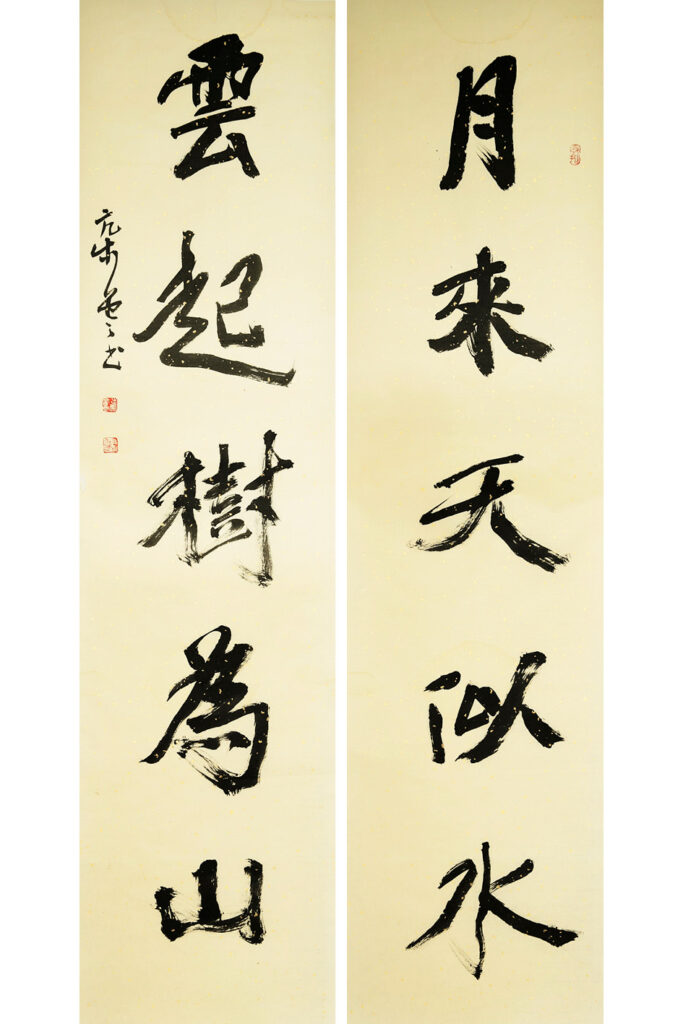 月來天似水
雲起樹為山